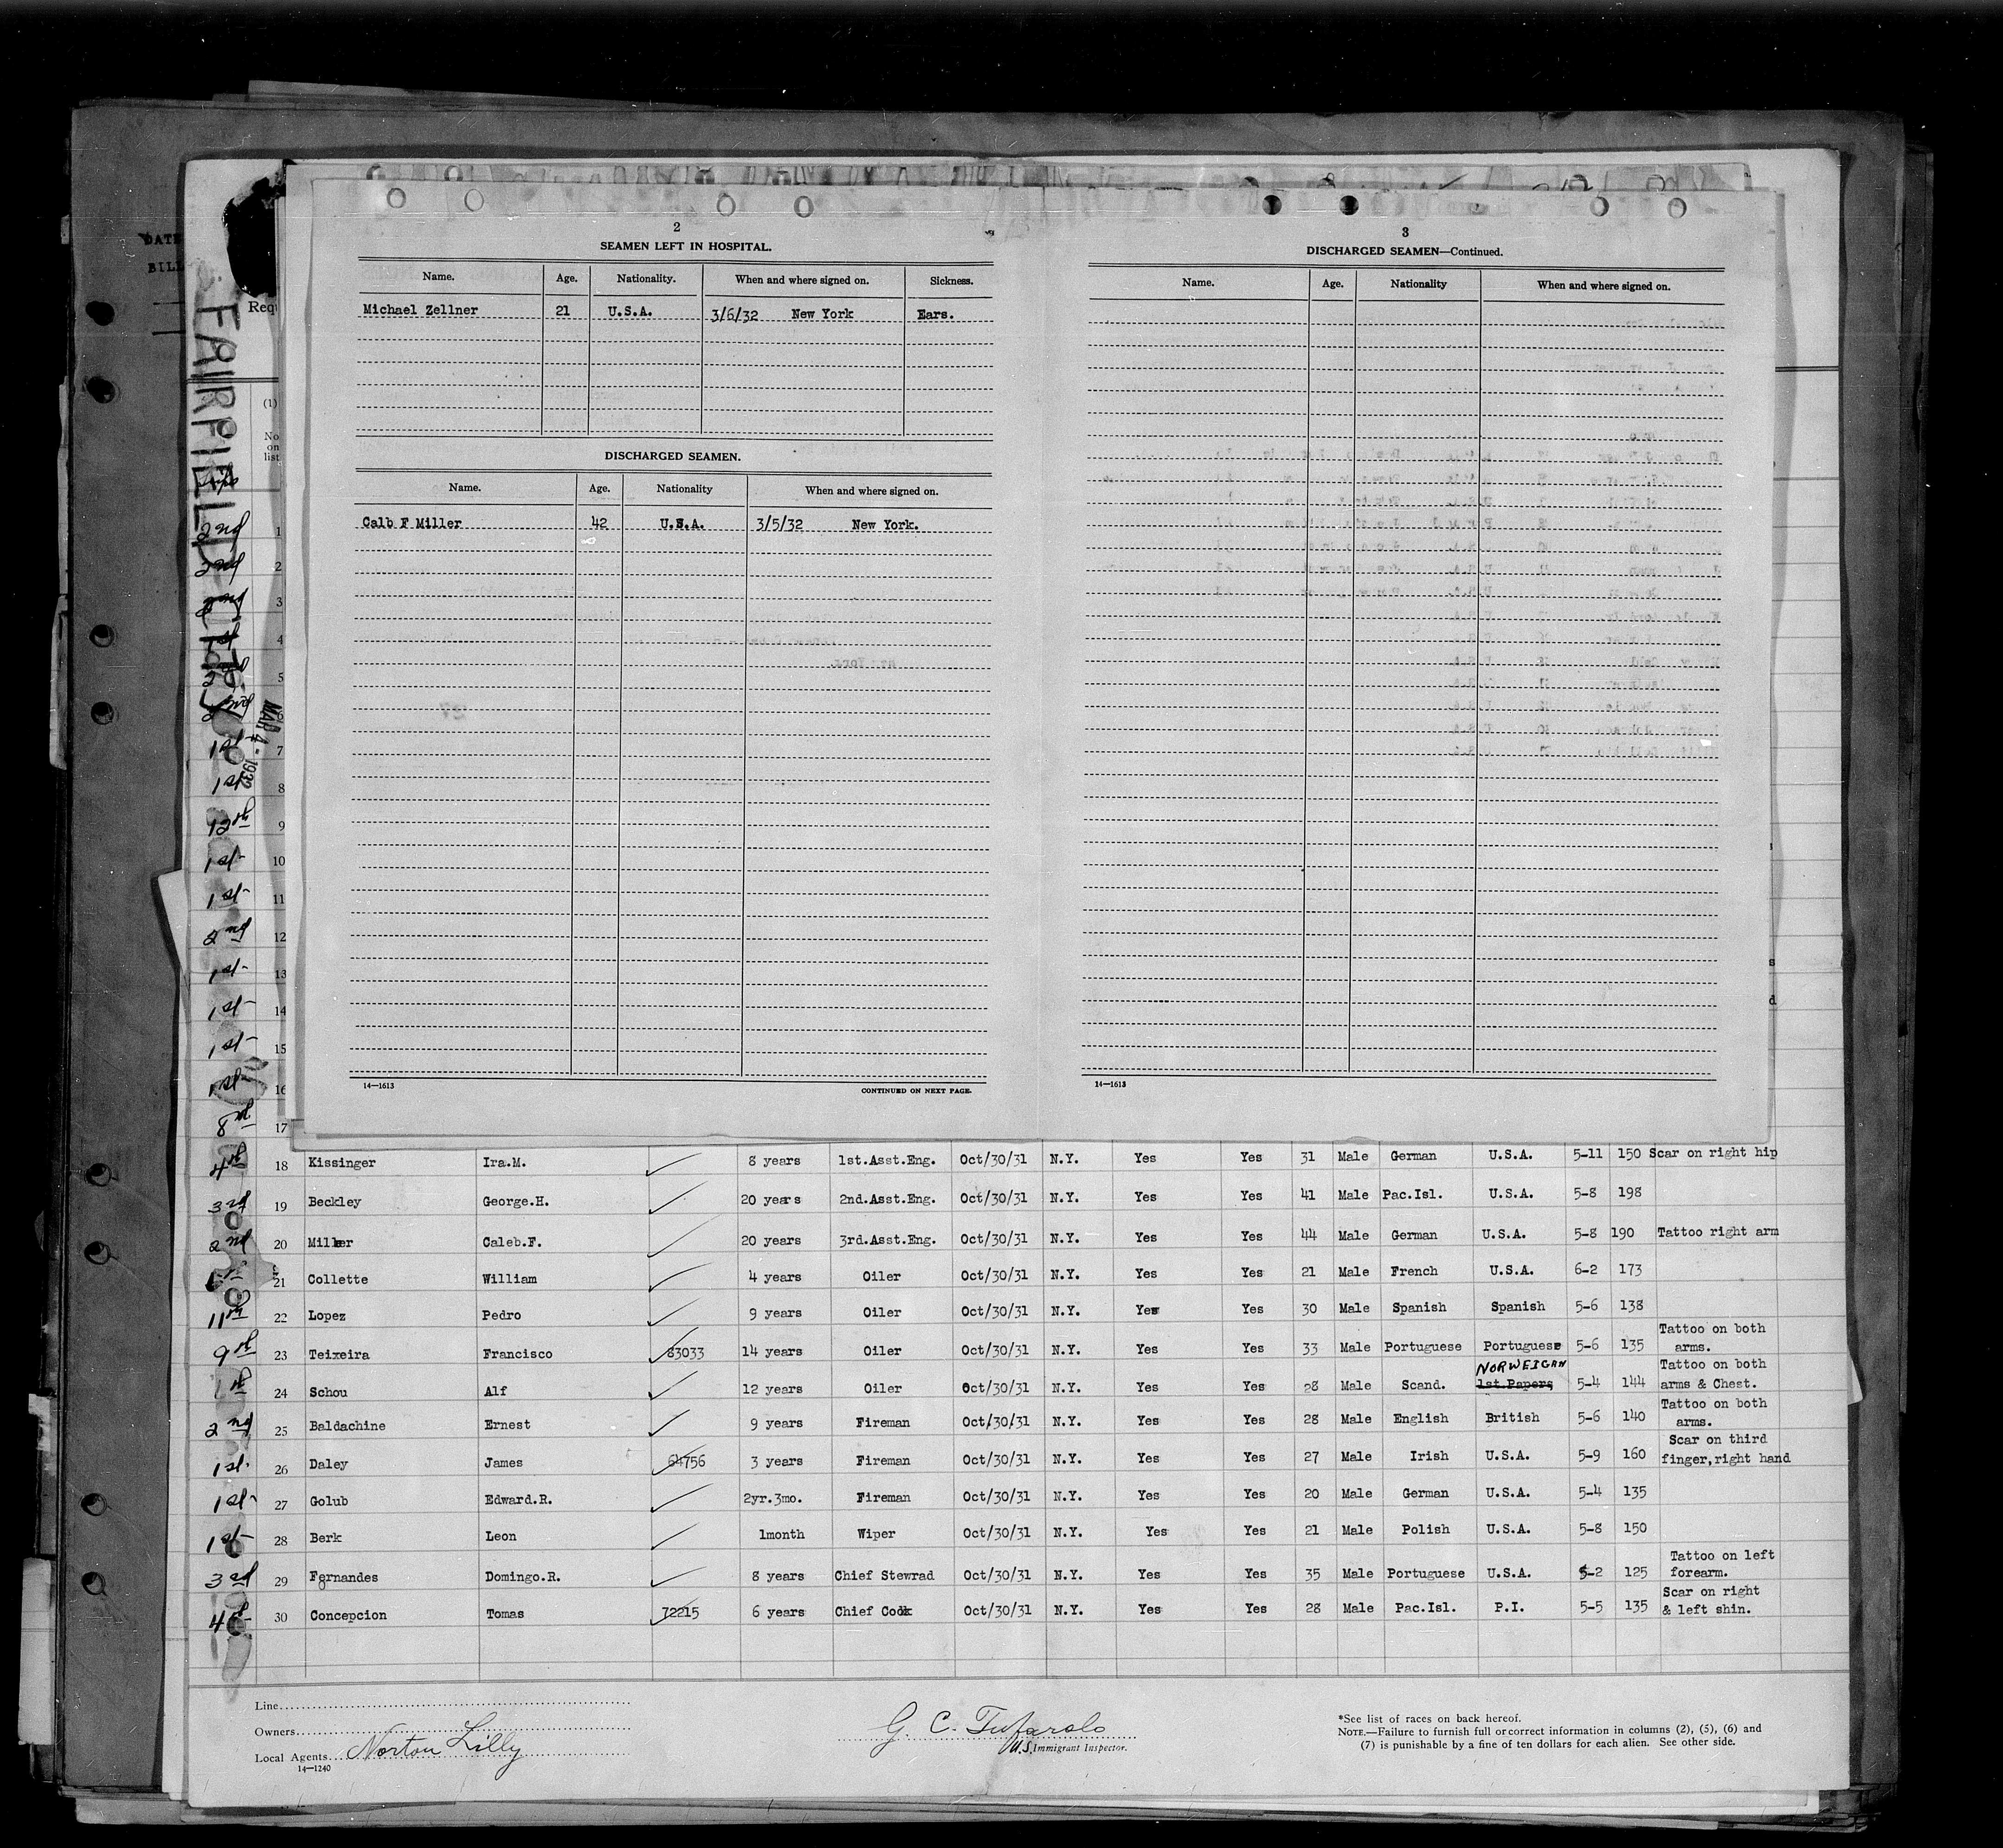 2
SEAMEN LEFT IN HOSPITAL.
Name. Age. Nationality. When and where signed on. Sickness.
Michael Zellner 21 U.S.A. 3/6/32 New York Ears.
DISCHARGED SEAMEN.
Name. Age. Nationality When and where signed on.
Calb F Miller 42 U.S.A. 3/5/32 New York.
14—1613 CONTINUED ON NEXT PAGE.
3
DISCHARGED SEAMEN—Continued.
Name. Age. Nationality When and where signed on.
14—1613
DATE
BILL
Requ
FAIRFIELD CITY
MAR 4 - 1932
(1)
No
on
list
2nd 1
2nd 2
2nd 3
4
5
6
1st 7
1st 8
9
1st 10
1st 11
2nd 12
1st 13
1st 14
1st 15
1st 16
17
18 Kissinger Ira.M. 8 years 1st.Asst.Eng. Oct/30/31 N.Y. Yes Yes 31 Male German U.S.A. 5-11 150 Scar on right hip
3rd 19 Beckley George.H. 20 years 2nd.Asst.Eng. Oct/30/31 N.Y. Yes Yes 41 Male Pac.Isl. U.S.A. 5-8 198
2nd 20 Miller Caleb.F. 20 years 3rd.Asst.Eng. Oct/30/31 N.Y. Yes Yes 44 Male German U.S.A. 5-8 190 Tattoo right arm
21 Collette William 4 years Oiler Oct/30/31 N.Y. Yes Yes 21 Male French U.S.A. 6-2 173
22 Lopez Pedro 9 years Oiler Oct/30/31 N.Y. Yes Yes 30 Male Spanish Spanish 5-6 138
23 Teixeira Francisco 83033 14 years Oiler Oct/30/31 N.Y. Yes Yes 33 Male Portuguese Portuguese 5-6 135 Tattoo on both
arms.
NORWEIGAN
24 Schou Alf 12 years Oiler Oct/30/31 N.Y. Yes Yes 28 Male Scand. 1st.Papers 5-4 144 Tattoo on both
arms & Chest.
2nd 25 Baldachine Ernest 9 years Fireman Oct/30/31 N.Y. Yes Yes 28 Male English British 5-6 140 Tattoo on both
arms.
1st. 26 Daley James 64756 3 years Fireman Oct/30/31 N.Y. Yes Yes 27 Male Irish U.S.A. 5-9 160 Scar on third
finger,right hand
1st 27 Golub Edward.R. 2yr.3mo. Fireman Oct/30/31 N.Y. Yes Yes 20 Male German U.S.A. 5-4 135
1st 28 Berk Leon 1month Wiper Oct/30/31 N.Y. Yes Yes 21 Male Polish U.S.A. 5-8 150
3rd 29 Fernandes Domingo.R. 8 years Chief Stewrad Oct/30/31 N.Y. Yes Yes 35 Male Portuguese U.S.A. 5-2 125 Tattoo on left
forearm.
30 Concepcion Tomas 72215 6 years Chief Cook Oct/30/31 N.Y. Yes Yes 28 Male Pac.Isl. P.I. 5-5 135 Scar on right
& left shin.
Line
Owners
Local Agents Norton Lilly
14—1240
G. C. Tufarolo
U.S. Immigrant Inspector.
*See list of races on back hereof.
NOTE.—Failure to furnish full or correct information in columns (2), (5), (6) and
(7) is punishable by a fine of ten dollars for each alien. See other side.